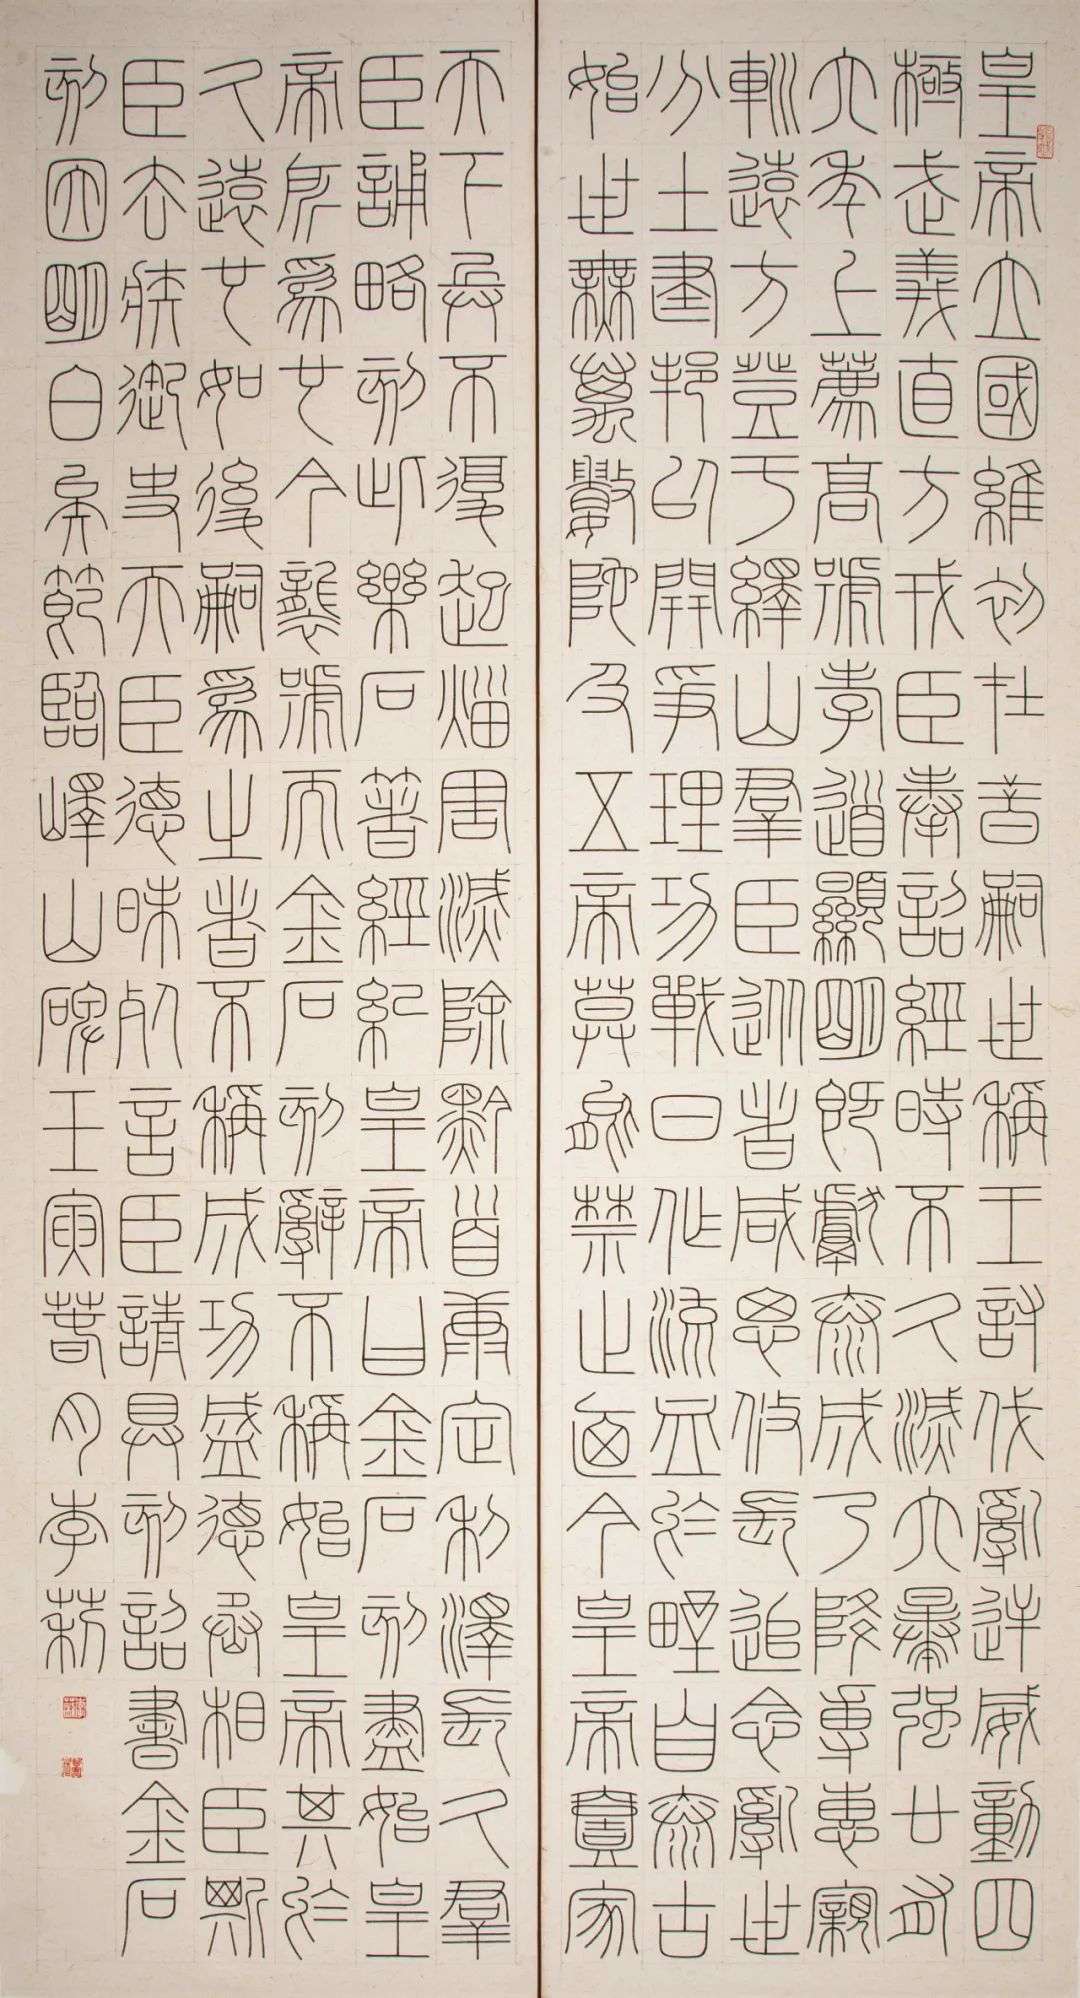 皇帝立國維初在昔嗣世稱王討伐亂逆威動四
極武義直方戎臣奉詔經時不久滅六暴強廿有
六年上薦高號孝道顯明既獻泰成乃降專惠親
巡遠方登于繹山羣臣從者咸思攸長追念亂世
分土建邦以開爭理功戰日作流血於野自泰古
始世無萬數陀及五帝莫能禁止廼今皇帝壹家
天下兵不復起災害滅除黔首康定利澤長久羣
臣誦略刻此樂石著經紀皇帝曰金石刻盡始皇
帝所為也今襲號而金石刻辭不稱始皇帝其於
久遠也如後嗣為之者不稱成功盛德丞相臣斯
臣去疾御史夫臣德昧死言臣請具刻詔書金石
刻因明白矣節臨嶧山碑壬寅萅月李莉